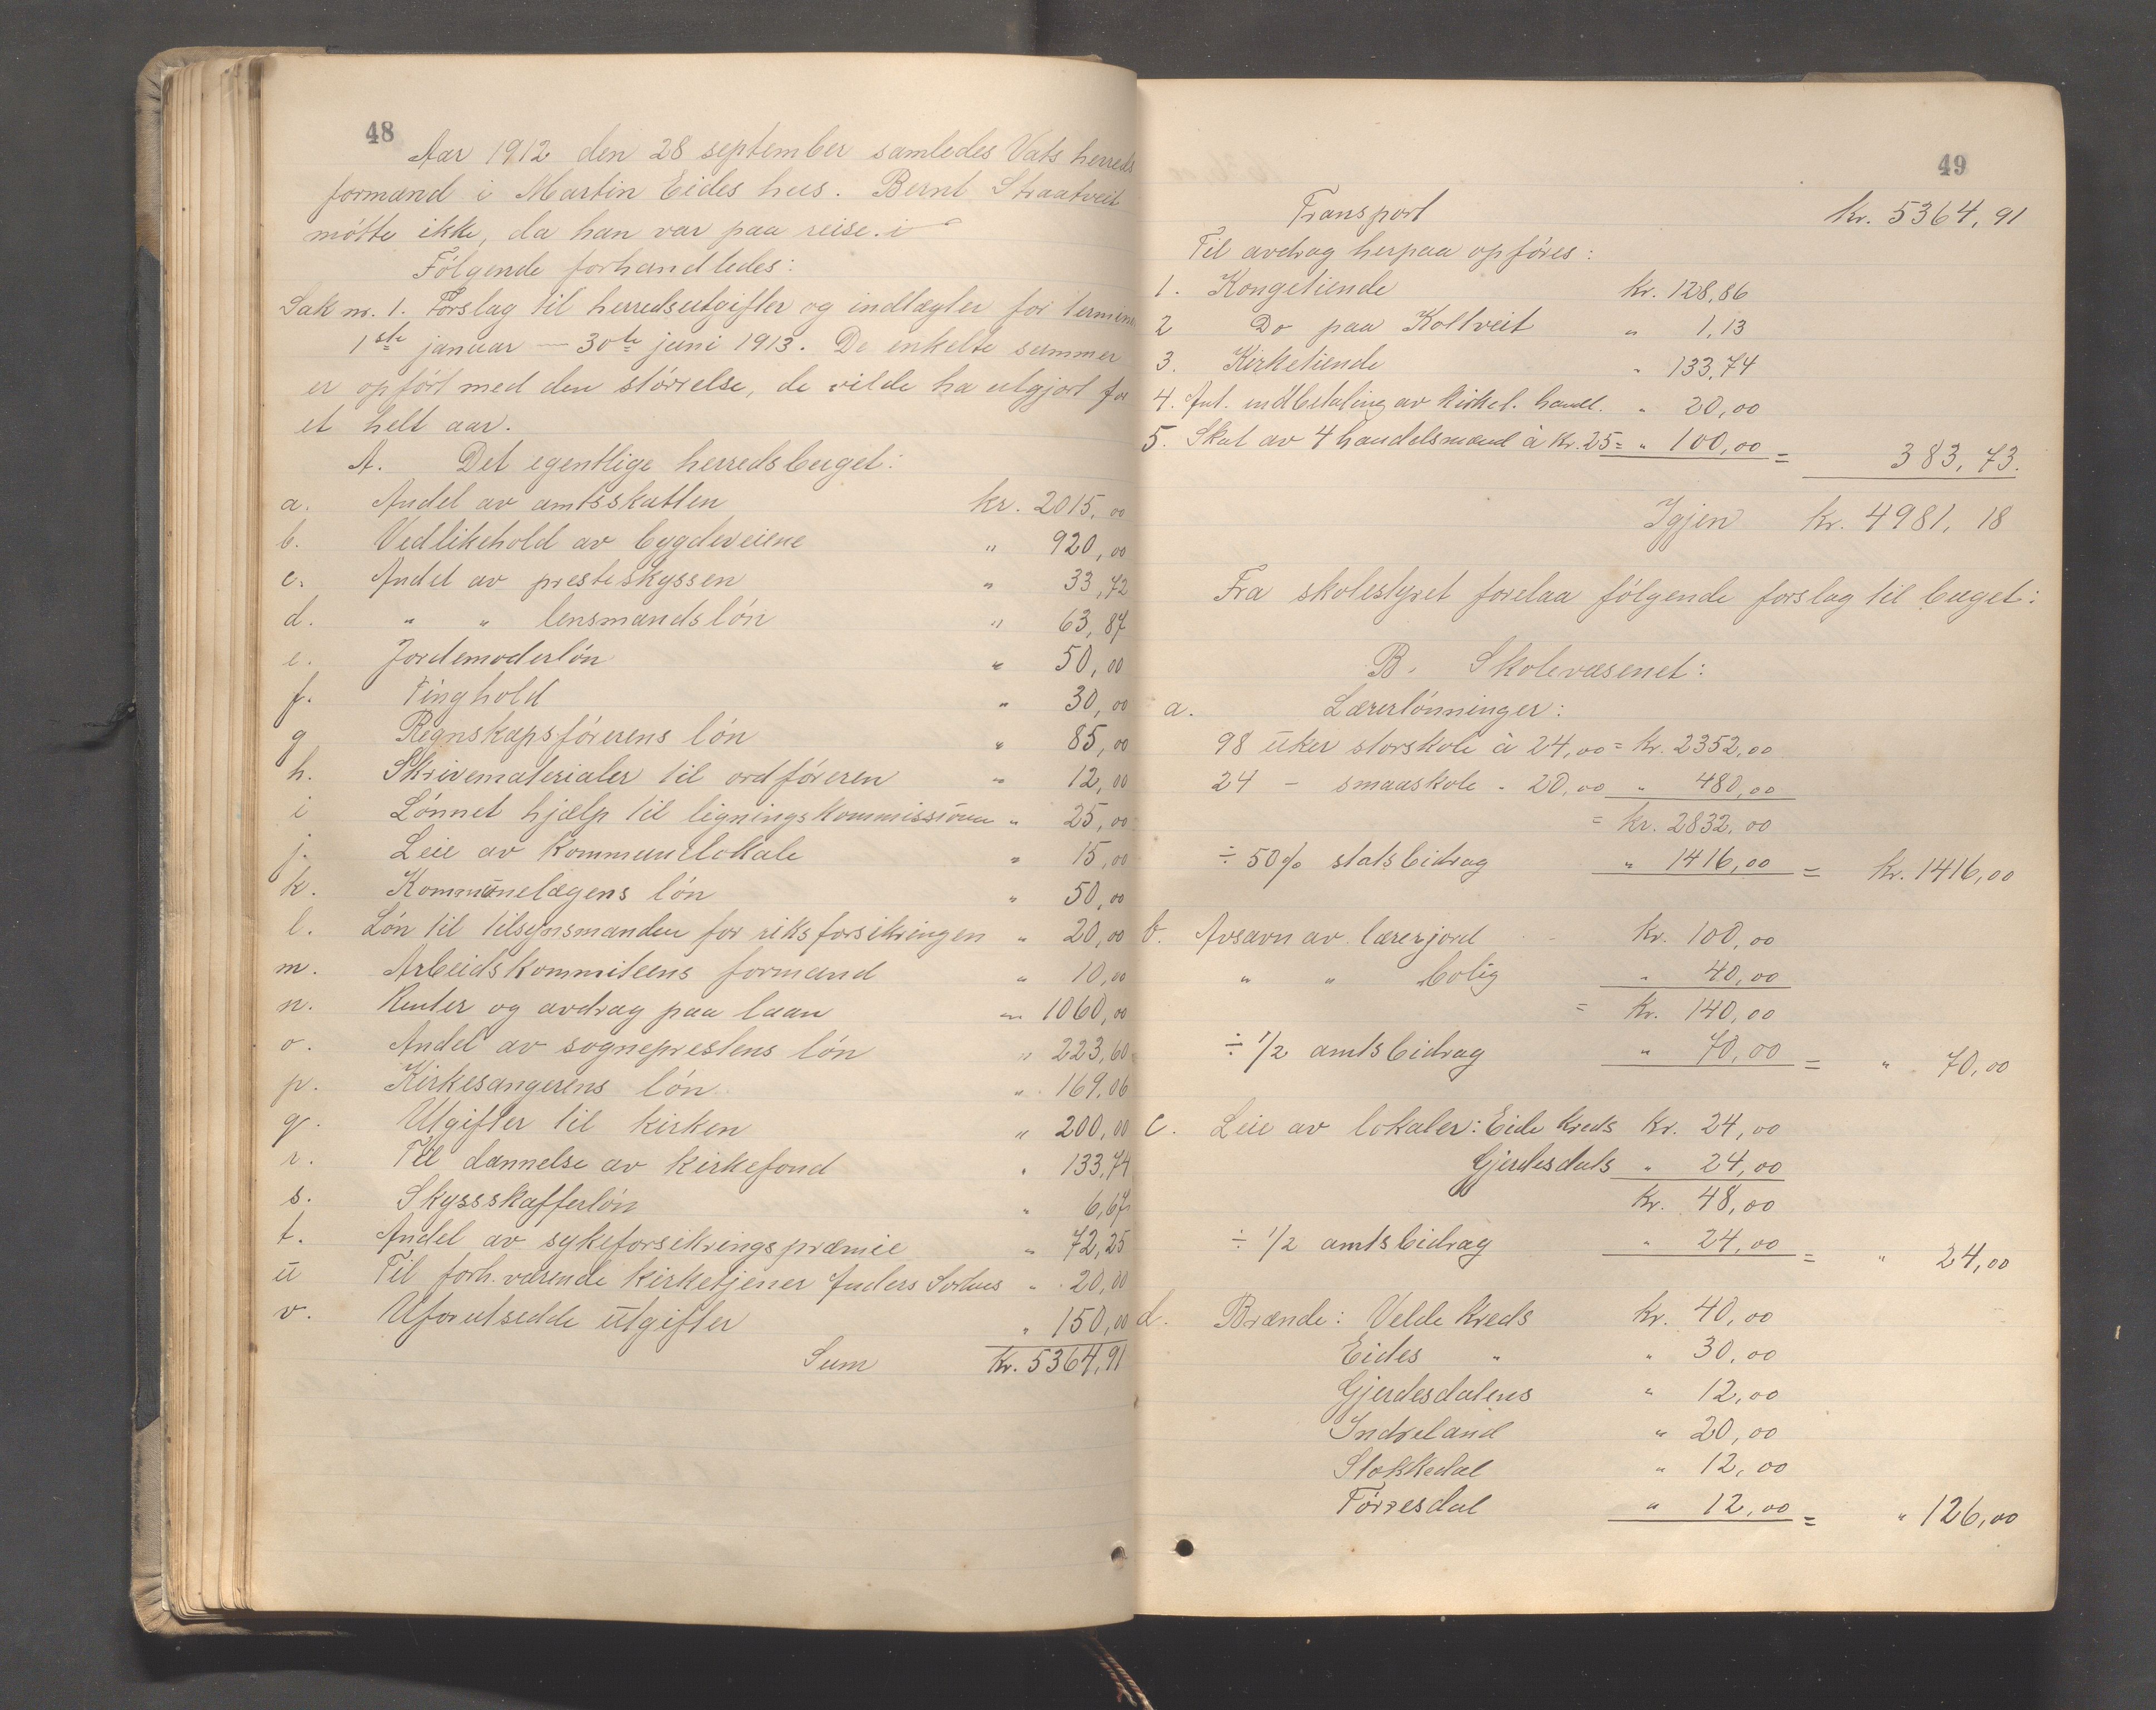 48
Aar 1912 den 28 september samledes Vats herreds
formand i Martin Eides hus. Bernt Straatveit
møtte ikke, da han var paa reise.
Følgende forhandledes:
Sak nr. 1. Forslag til herredsutgifter og indtægter for termin
1ste januar — 30te juni 1913. De enkelte summer
er opført med den størrelse, de vilde ha utgjort for
et helt aar.
A. Det egentlige herredsbuget:
a. Andel av amtsskatten kr. 2015,00
b. Vedlikehold av bygdeveiene " 920,00
c. Andel av presteskyssen " 33,72
d. " " lensmandsløn " 63,87
e. Jordemoderløn " 50,00
f. Tinghold " 30,00
g Regnskapsførerens løn " 85,00
h. Skrivematerialer til ordføreren " 12,00
i Lønnet hjælp til ligningskommissionen " 25,00
j. Leie av kommunelokale " 15,00
k. Kommunelægens løn " 50,00
l. Løn til tilsynsmanden for riksforsikringen " 20,00
m. Arbeidskommiteens formand " 10,00
n. Renter og avdrag paa laan " 1060,00
o. Andel av sogneprestens løn " 223,60
p. Kirkesangerens løn " 169,06
q. Utgifter til kirken " 200,00
r. Til dannelse av kirkefond " 133,74
s. Skyssskafferløn " 6,67
t. Andel av sykeforsikringspræmie " 72,25
u Til forh. værende kirketjener Anders " 20,00
v. Uforutsedde utgifter " 150,00
Sum Kr. 5364,91
49
Transport kr. 5364,91
Til avdrag herpaa opføres:
1. Kongetiende kr. 128,86
2 Do paa Koltveit " 1,13
3. Kirketiende " 133,74
4. Ant. indbetaling av kirkel. handl. " 20,00
5. Skat av 4 handelsmænd à kr. 25 = " 100,00 = 383,73.
Igjen kr. 4981,18
Fra skolestyret forelaa følgende forslag til buget:
B. Skolevæsenet:
a. Lærerlønninger:
98 uker storskole à 24,00 = kr. 2352,00
24 - smaaskole - 20,00 " 480,00
= kr. 2832,00
÷ 50% statsbidrag " 1416,00 = kr. 1416,00
b. Avsavn av lærerjord kr. 100,00
" " bolig " 40,00
= kr. 140,00
÷ 1/2 amtsbidrag " 70,00 = " 70,00
c. Leie av lokaler: Eide kreds kr. 24,00
Gjerdesdals " 24,00
kr. 48,00
÷ 1/2 amtsbidrag " 24,00 = " 24,00
d. Brænde: Velde kreds kr. 40,00
Eides " " 30,00
Gjerdesdalens " 12,00
Indreland " 20,00
Stokkedal " 12,00
Tørresdal " 12,00 = " 126,00